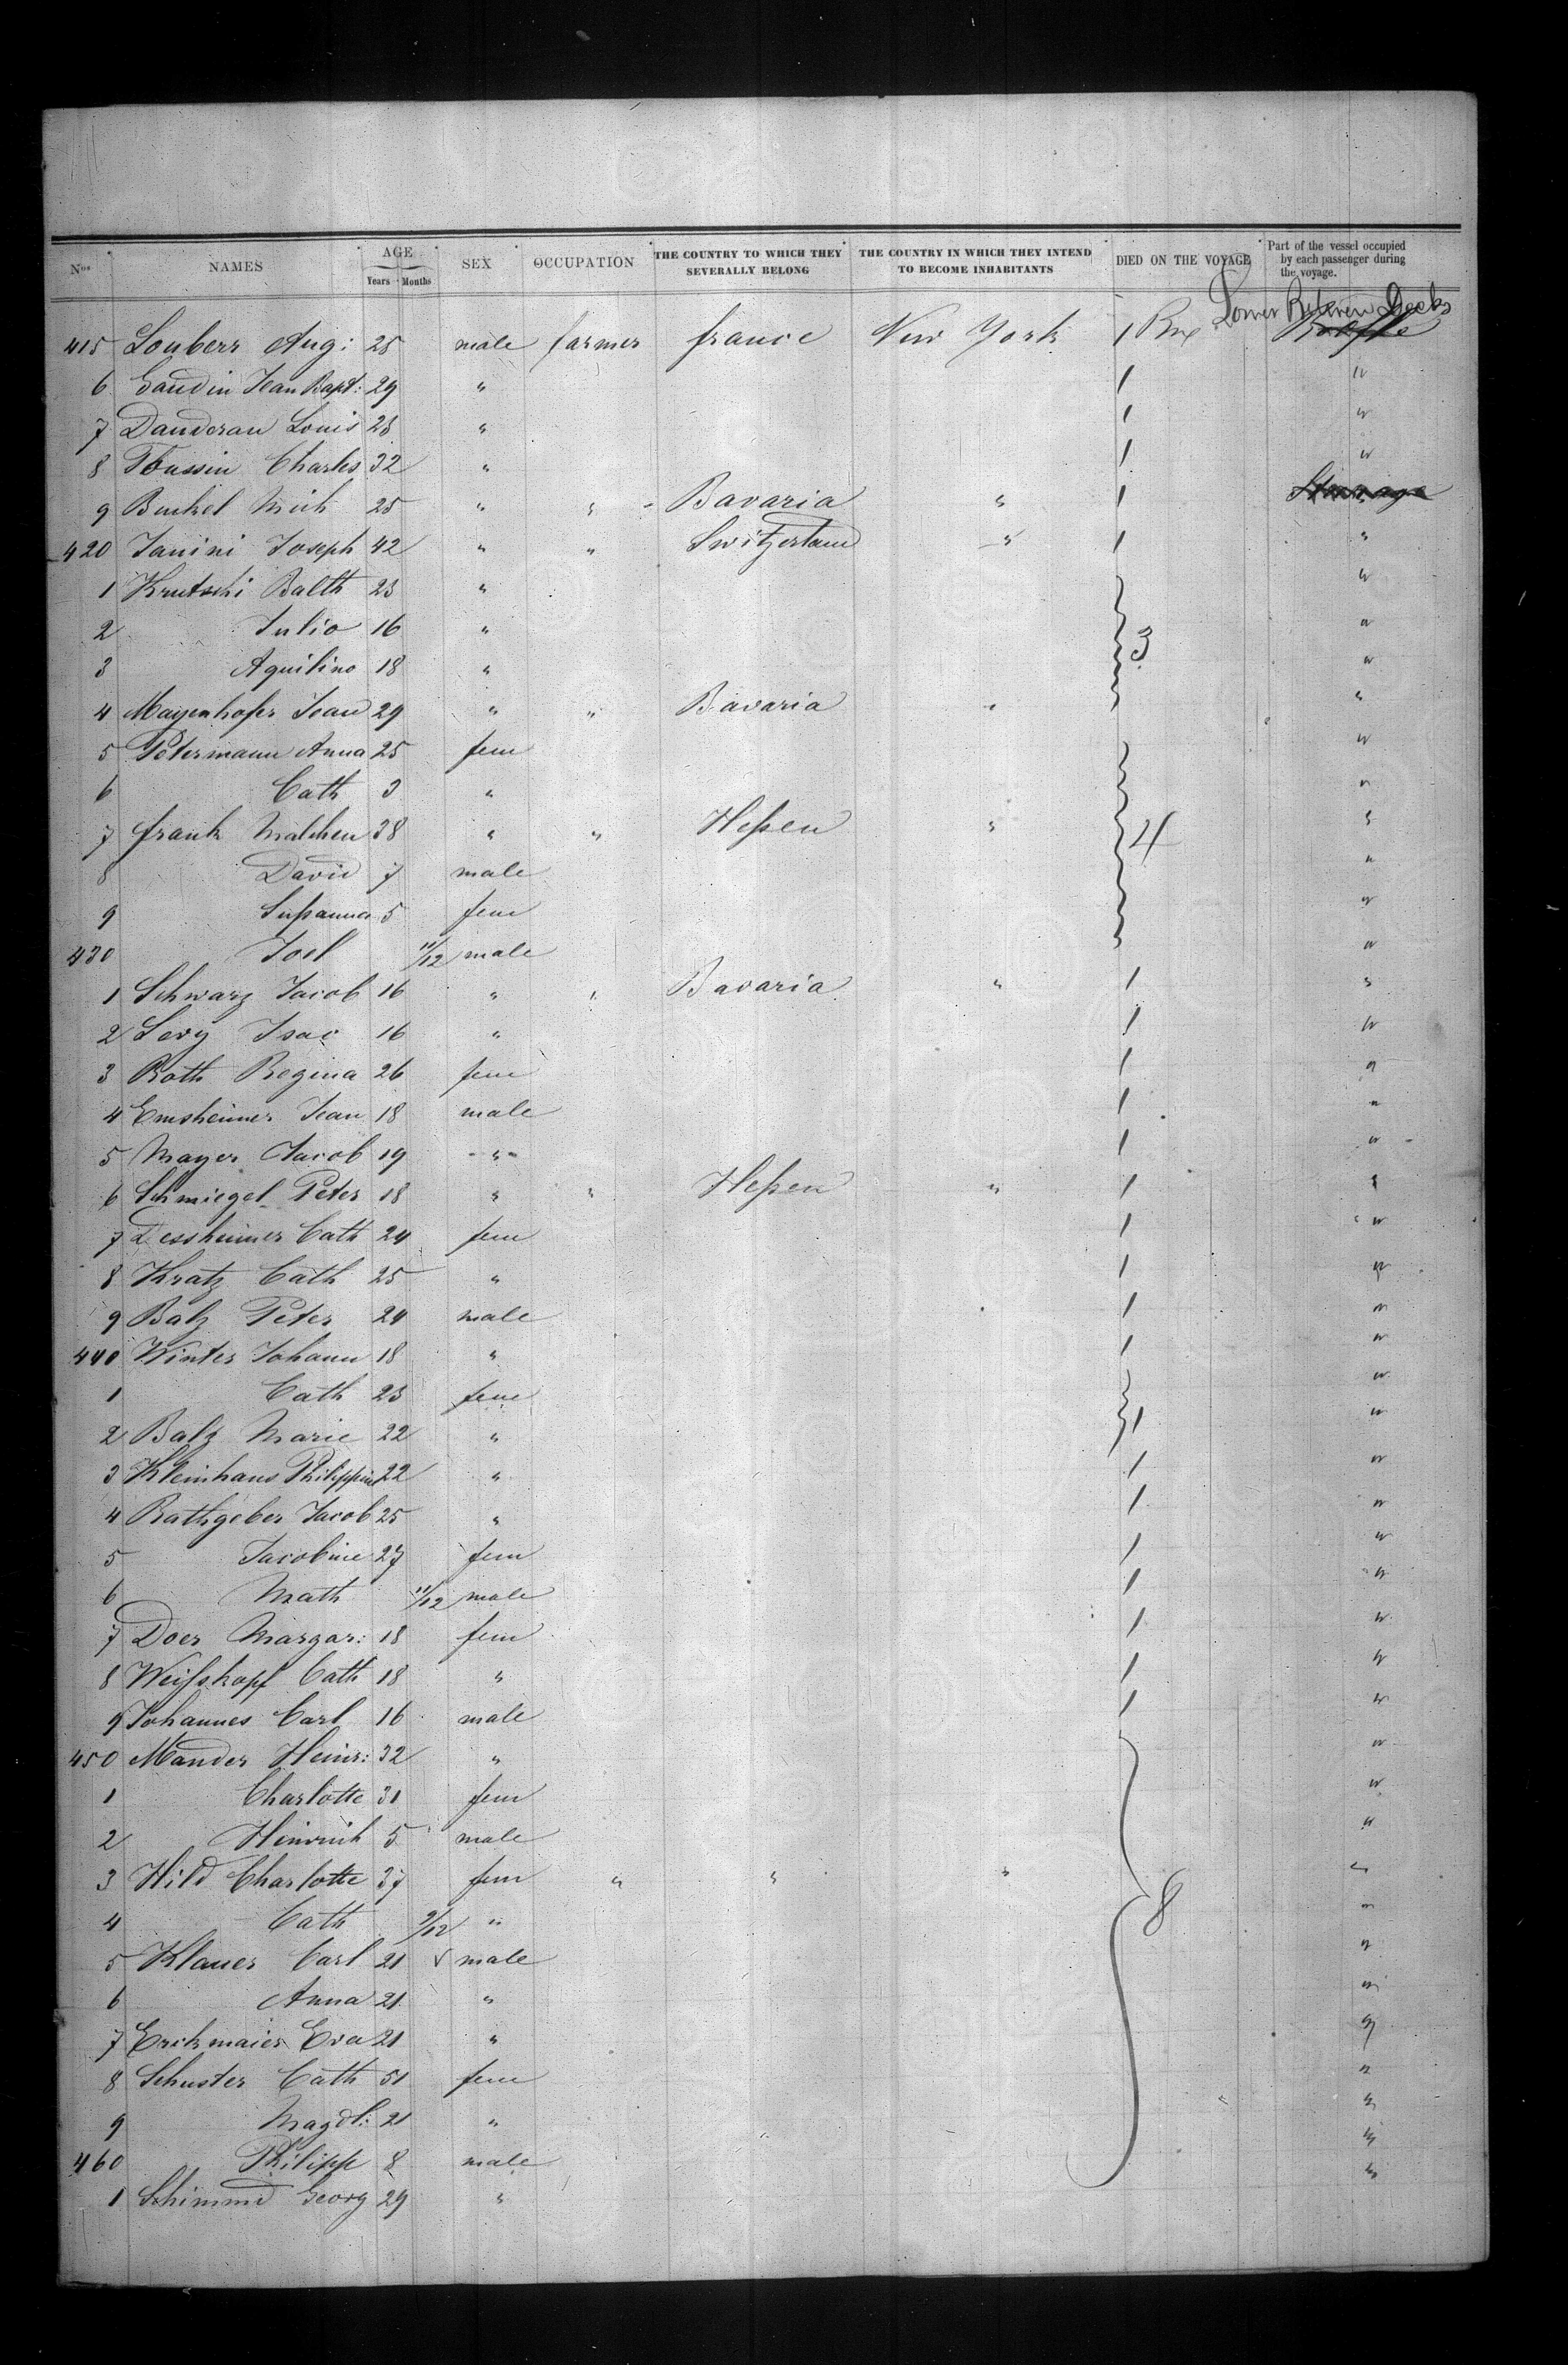 Nos NAMES AGE Years Months SEX OCCUPATION THE COUNTRY TO WHICH THEY SEVERALLY BELONG THE COUNTRY IN WHICH THEY INTEND TO BECOME INHABITANTS DIED ON THE VOYAGE Part of the vessel occupied by each passenger during the voyage.
Lower Between Decks
415 Louberr Aug: 25 male farmer france New York 1 Box
6 Gaudin Jean Bapt: 29 " 1 "
7 Dauderau Louis 28 " 1 "
8 Toussin Charles 32 " 1 "
9 Bunkel Mich 25 " " Bavaria " 1 Steerage
420 Janini Joseph 42 " " Switzerland " 1 "
1 Krutschi Balth 23 " "
2 Julio 16 " "
3 Aquilino 18 " 3 "
4 Mayenhofer Jean 29 " " Bavaria " "
5 Petermann Anna 25 fem "
6 Cath 3 " "
7 frank Malchen 38 " " Heßen " 4 "
8 David 7 male "
9 Sußanna 5 fem "
430 Joel 11/12 male "
1 Schwarz Jacob 16 " " Bavaria " 1 "
2 Levy Isac 16 " 1 "
3 Roth Regina 26 fem 1 "
4 Emsheimer Jean 18 male 1 "
5 Mayer Jacob 19 " 1 "
6 Schmiegel Peter 18 " " Heßen " 1 "
7 Dessheimer Cath 24 fem 1 "
8 Kratz Cath 25 " 1 "
9 Balz Peter 24 male 1 "
440 Winter Johann 18 " 1 "
1 Cath 23 fem "
2 Balz Marie 22 " 1 "
3 Kleinhans Philippine 22 " 1 "
4 Rathgeber Jacob 25 " 1 "
5 Jacobine 27 fem 1 "
6 Math 11/12 male 1 "
7 Doer Margar: 18 fem 1 "
8 Weißkopf Cath 18 " 1 "
9 Johannes Carl 16 male 1 "
450 Mander Heinr: 32 " "
1 Charlotte 31 fem "
2 Heinrich 5 male "
3 Hild Charlotte 37 fem " " " "
4 Cath 9/12 " 8 "
5 Klauer Carl 21 male "
6 Anna 21 " "
7 Erckmaier Eva 21 " "
8 Schuster Cath 51 fem "
9 Magdl: 21 " "
460 Philipp 8 male "
1 Schimmd Georg 29 " "